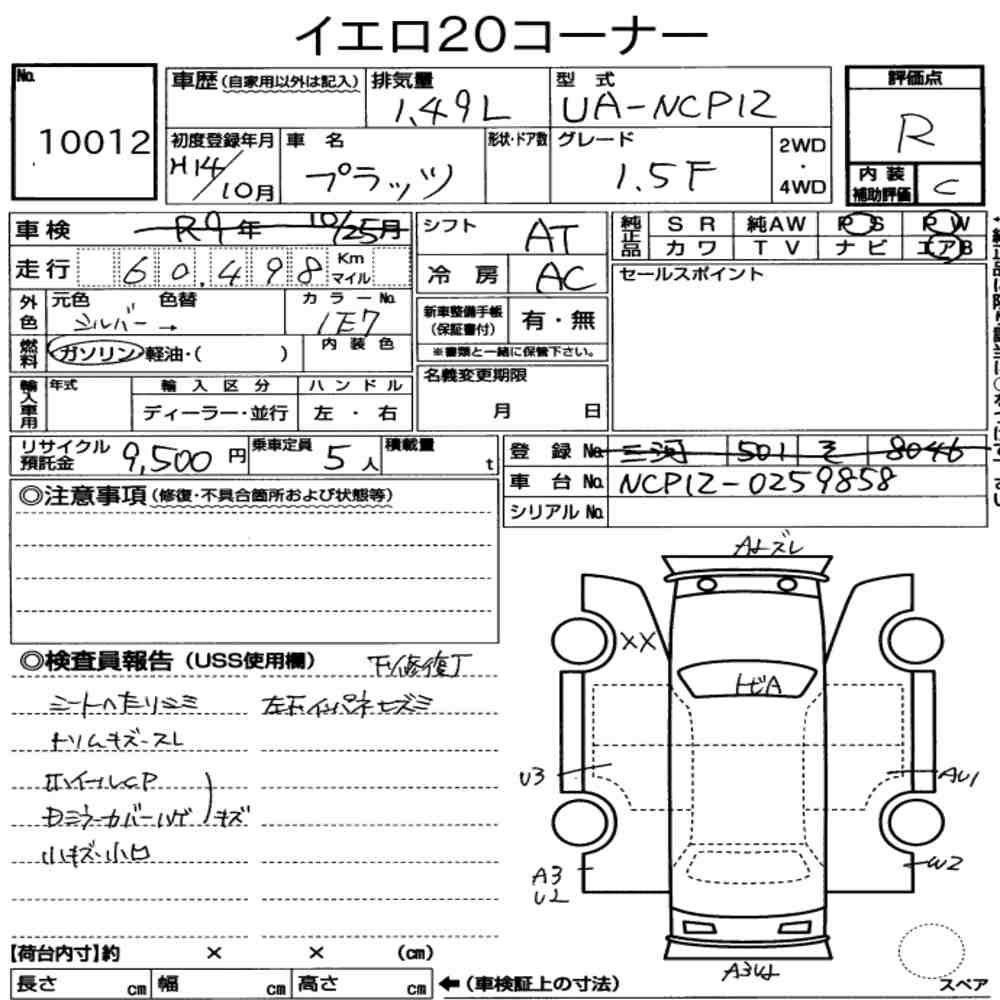 イエロ20コーナー
No. 10012
車歴(自家用以外は記入) 排気量 1.49L 型式 UA-NCP12
初度登録年月 H14/10月 車名 プラッツ 形状・ドア数 グレード 1.5F 2WD・4WD
評価点 R
内装補助評価 C
車検 R9年 10/25月
走行 60,498 Km マイル
外色 元色 シルバー → 色替 カラーNo. 1E7
燃料 ガソリン・軽油・( ) 内装色
輸入車用 年式 輸入区分 ディーラー・並行 ハンドル 左・右
シフト AT
冷房 AC
新車整備手帳(保証書付) 有・無
※書類と一緒に保管下さい。
名義変更期限 月 日
純正品 SR 純AW PS PW
カワ TV ナビ エアB
セールスポイント
リサイクル預託金 9,500円 乗車定員 5人 積載量 t
登録No. 三河 501 そ 8046
車台No. NCP12-0259858
シリアルNo.
◎注意事項(修復・不具合箇所および状態等)
◎検査員報告(USS使用欄)
シートヘたりシミ
トリムキズ・スレ
ホイールCP
Dミラーカバーハゲ キズ
小キズ・小凹
XX
トビA
U3
AU1
A3
U2
W2
【荷台内寸】約 × × (cm)
長さ cm 幅 cm 高さ cm ←(車検証上の寸法)
スペア